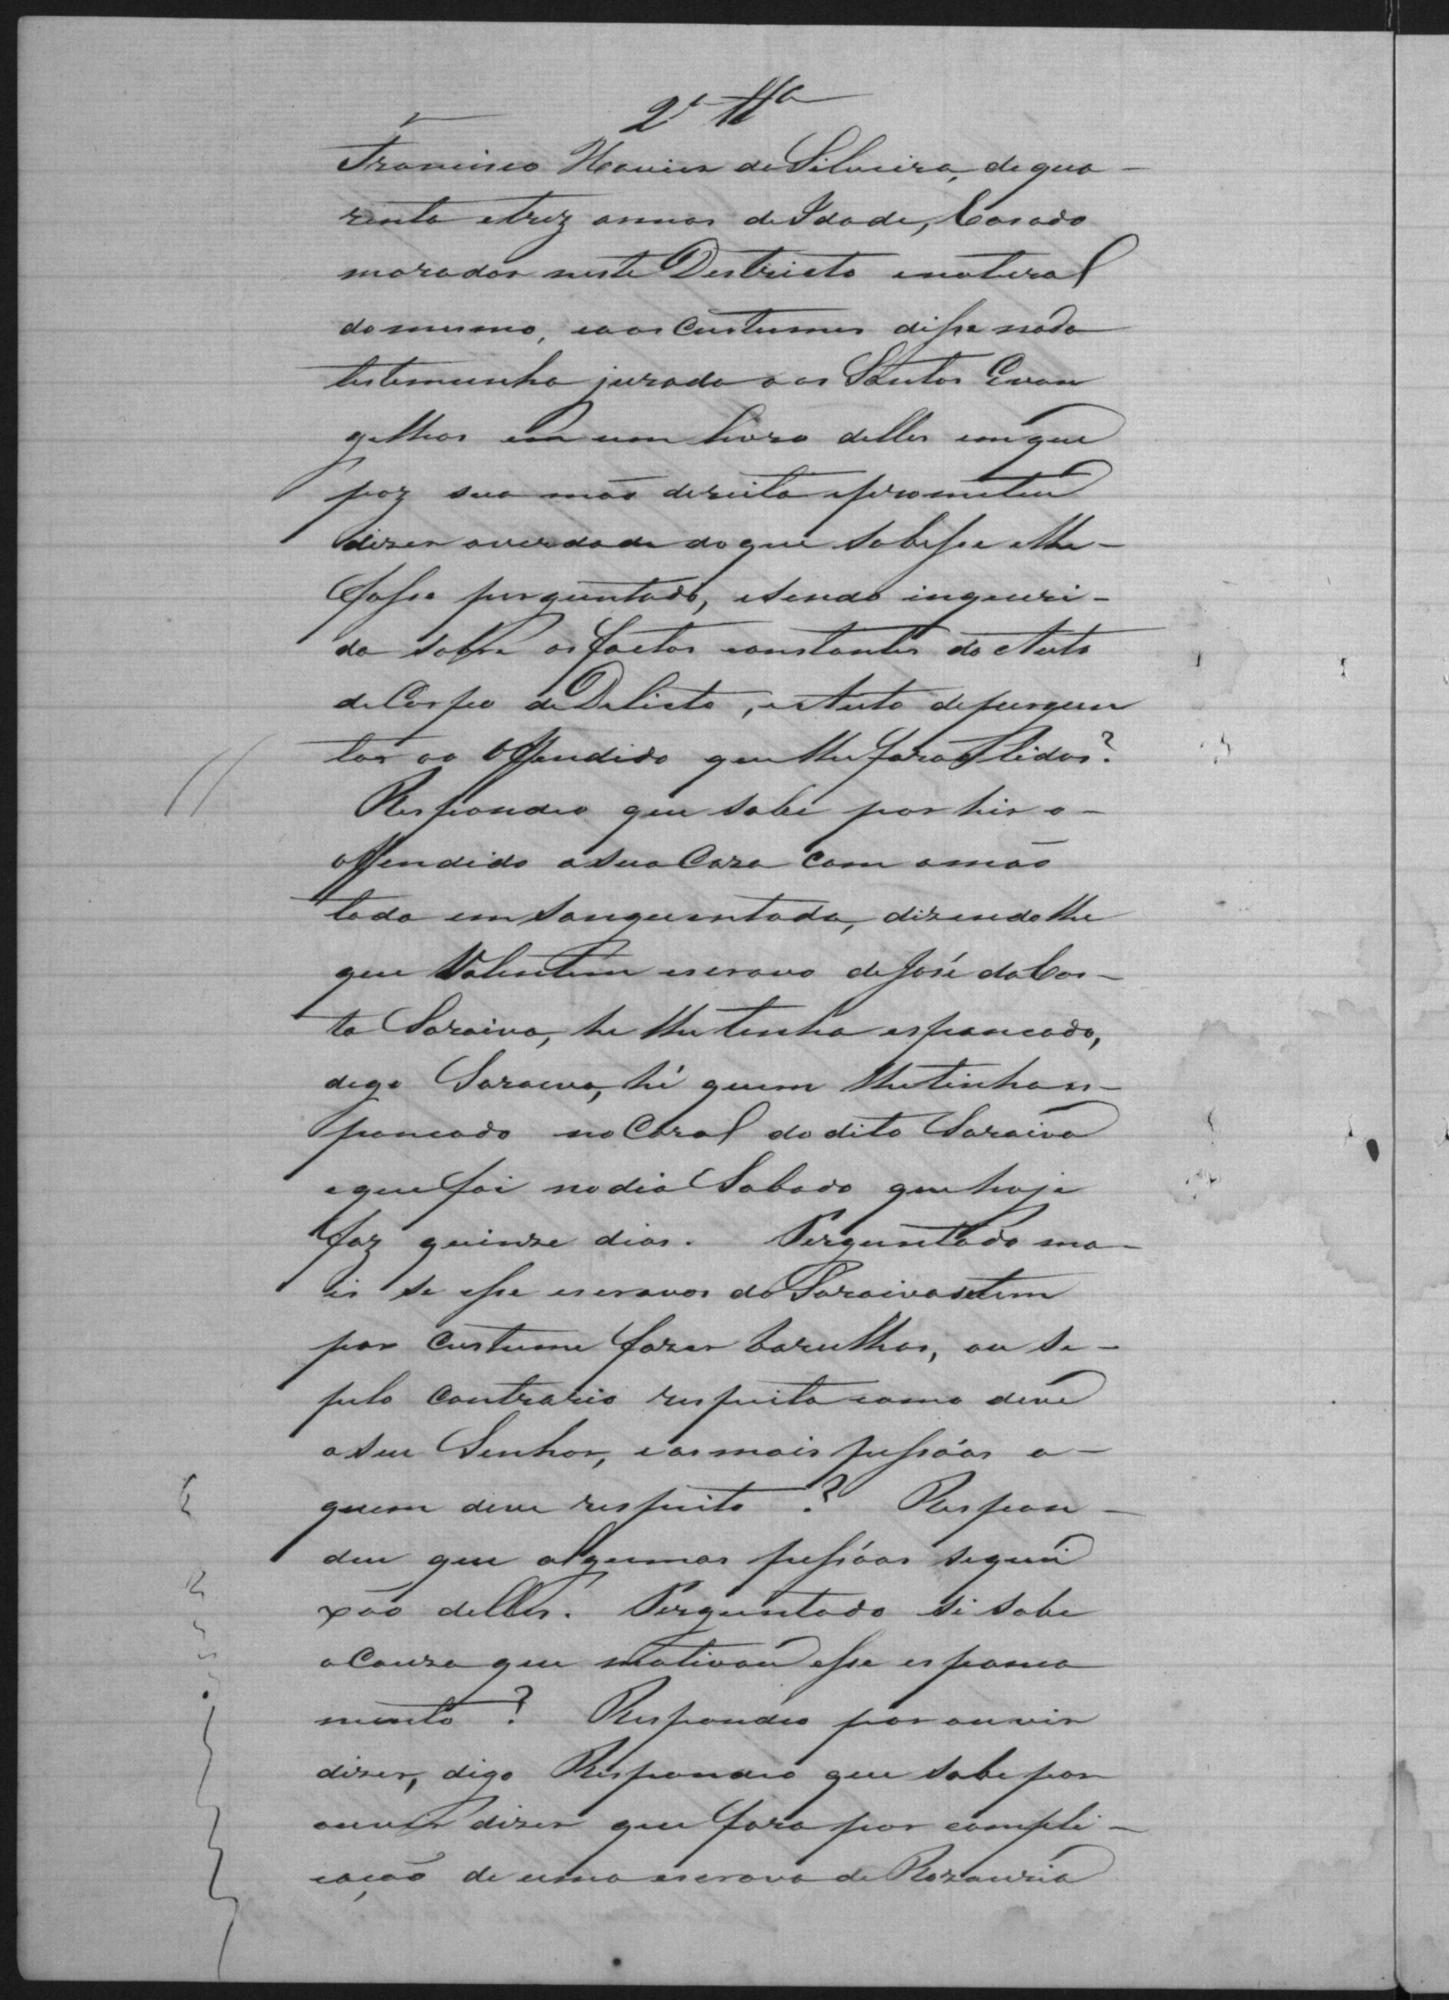 2ª Ttª
Francisco Xavier da Silveira, de qua-
renta e trez annos de Idade, Casado
morador neste Destricto e natural
do mesmo, e aos Custumes disse nada
testemunha jurada aos Santos Evan
gelhos em um livro delles em que
poz sua mão direita e prometeu
dizer averdade do que sobesse e lhe-
fosse perguntado, e sendo inqueri-
do sobre os factos constantes do Auto
de Corpo de Delicto, e Auto de pergun
tas ao Offendido que lhe forão lidos?
Respondeo que sabe por hir o-
offendido a sua Caza com a mão
toda emsanguentada, dizendo lhe
que Valentim escravo de José da Cos-
ta Saraiva, he lhe tinha espancado,
digo Saraiva, hé quem lhe tinha es-
pancado no Coral do dito Saraiva
e que foi no dia Sabado que hoje
faz quinze dias. Perguntado ma-
is se esse escravos do Saraiva tem
por custume fazer barulhos, ou se-
pelo contrario respeita como deve
a seu Senhor, e as mais pessôas a-
quem deve respeito? Respon-
deu que algumas pessôas se quei
xão delles. Perguntado si sabe
a Cauza que motivou esse espanca
mento? Respondeo por ouvir
dizer, digo Respondeo que sabe por
ouvir dizer que fora por compli-
cação de uma escrava de Rozauria